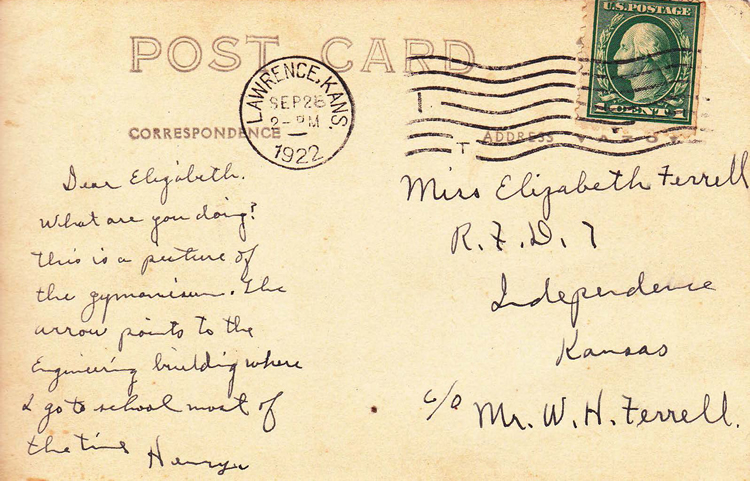 POST CARD
U.S. POSTAGE
1 CENT 1
LAWRENCE, KANS.
SEP 26
2-PM
1922
CORRESPONDENCE
ADDRESS
Dear Elizabeth.
What are you doing?
This is a picture of
the gymanisum. The
arrow points to the
Engineering building where
I go to school most of
the time
Henry
Miss Elizabeth Ferrell
R.F.D. 7
Independence
Kansas
c/o Mr. W. H. Ferrell.